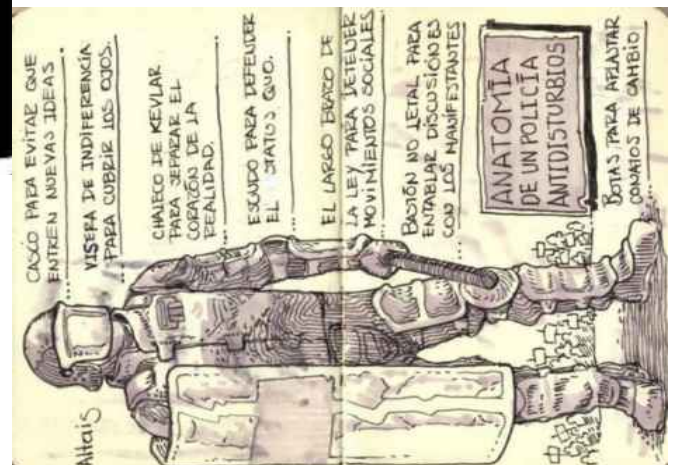 CASCO PARA EVITAR QUE
ENTREN NUEVAS IDEAS
VISERA DE INDIFERENCIA
PARA CUBRIR LOS OJOS.
CHALECO DE KEVLAR
PARA SEPARAR EL
CORAZÓN DE LA
REALIDAD.
ESCUDO PARA DEFENDER
EL STATUS QUO.
EL LARGO BRAZO DE
LA LEY PARA DETENER
MOVIMIENTOS SOCIALES
BASTÓN NO LETAL PARA
ENTABLAR DISCUSIÓNES
CON LOS MANIFESTANTES
ANATOMÍA
DE UN POLICÍA
ANTIDISTURBIOS
BOTAS PARA APLASTAR
CONATOS DE CAMBIO
Altais